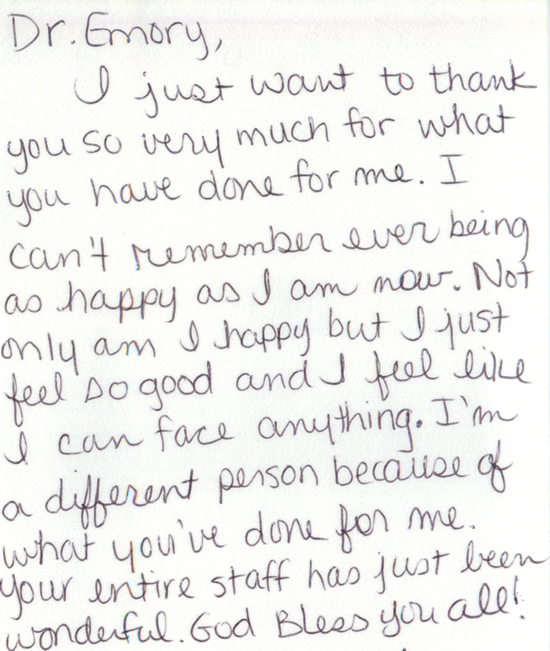 Dr. Emory,
I just want to thank
you so very much for what
you have done for me. I
can't remember ever being
as happy as I am now. Not
only am I happy but I just
feel so good and I feel like
I can face anything. I'm
a different person because of
what you've done for me.
Your entire staff has just been
wonderful. God Bless you all!